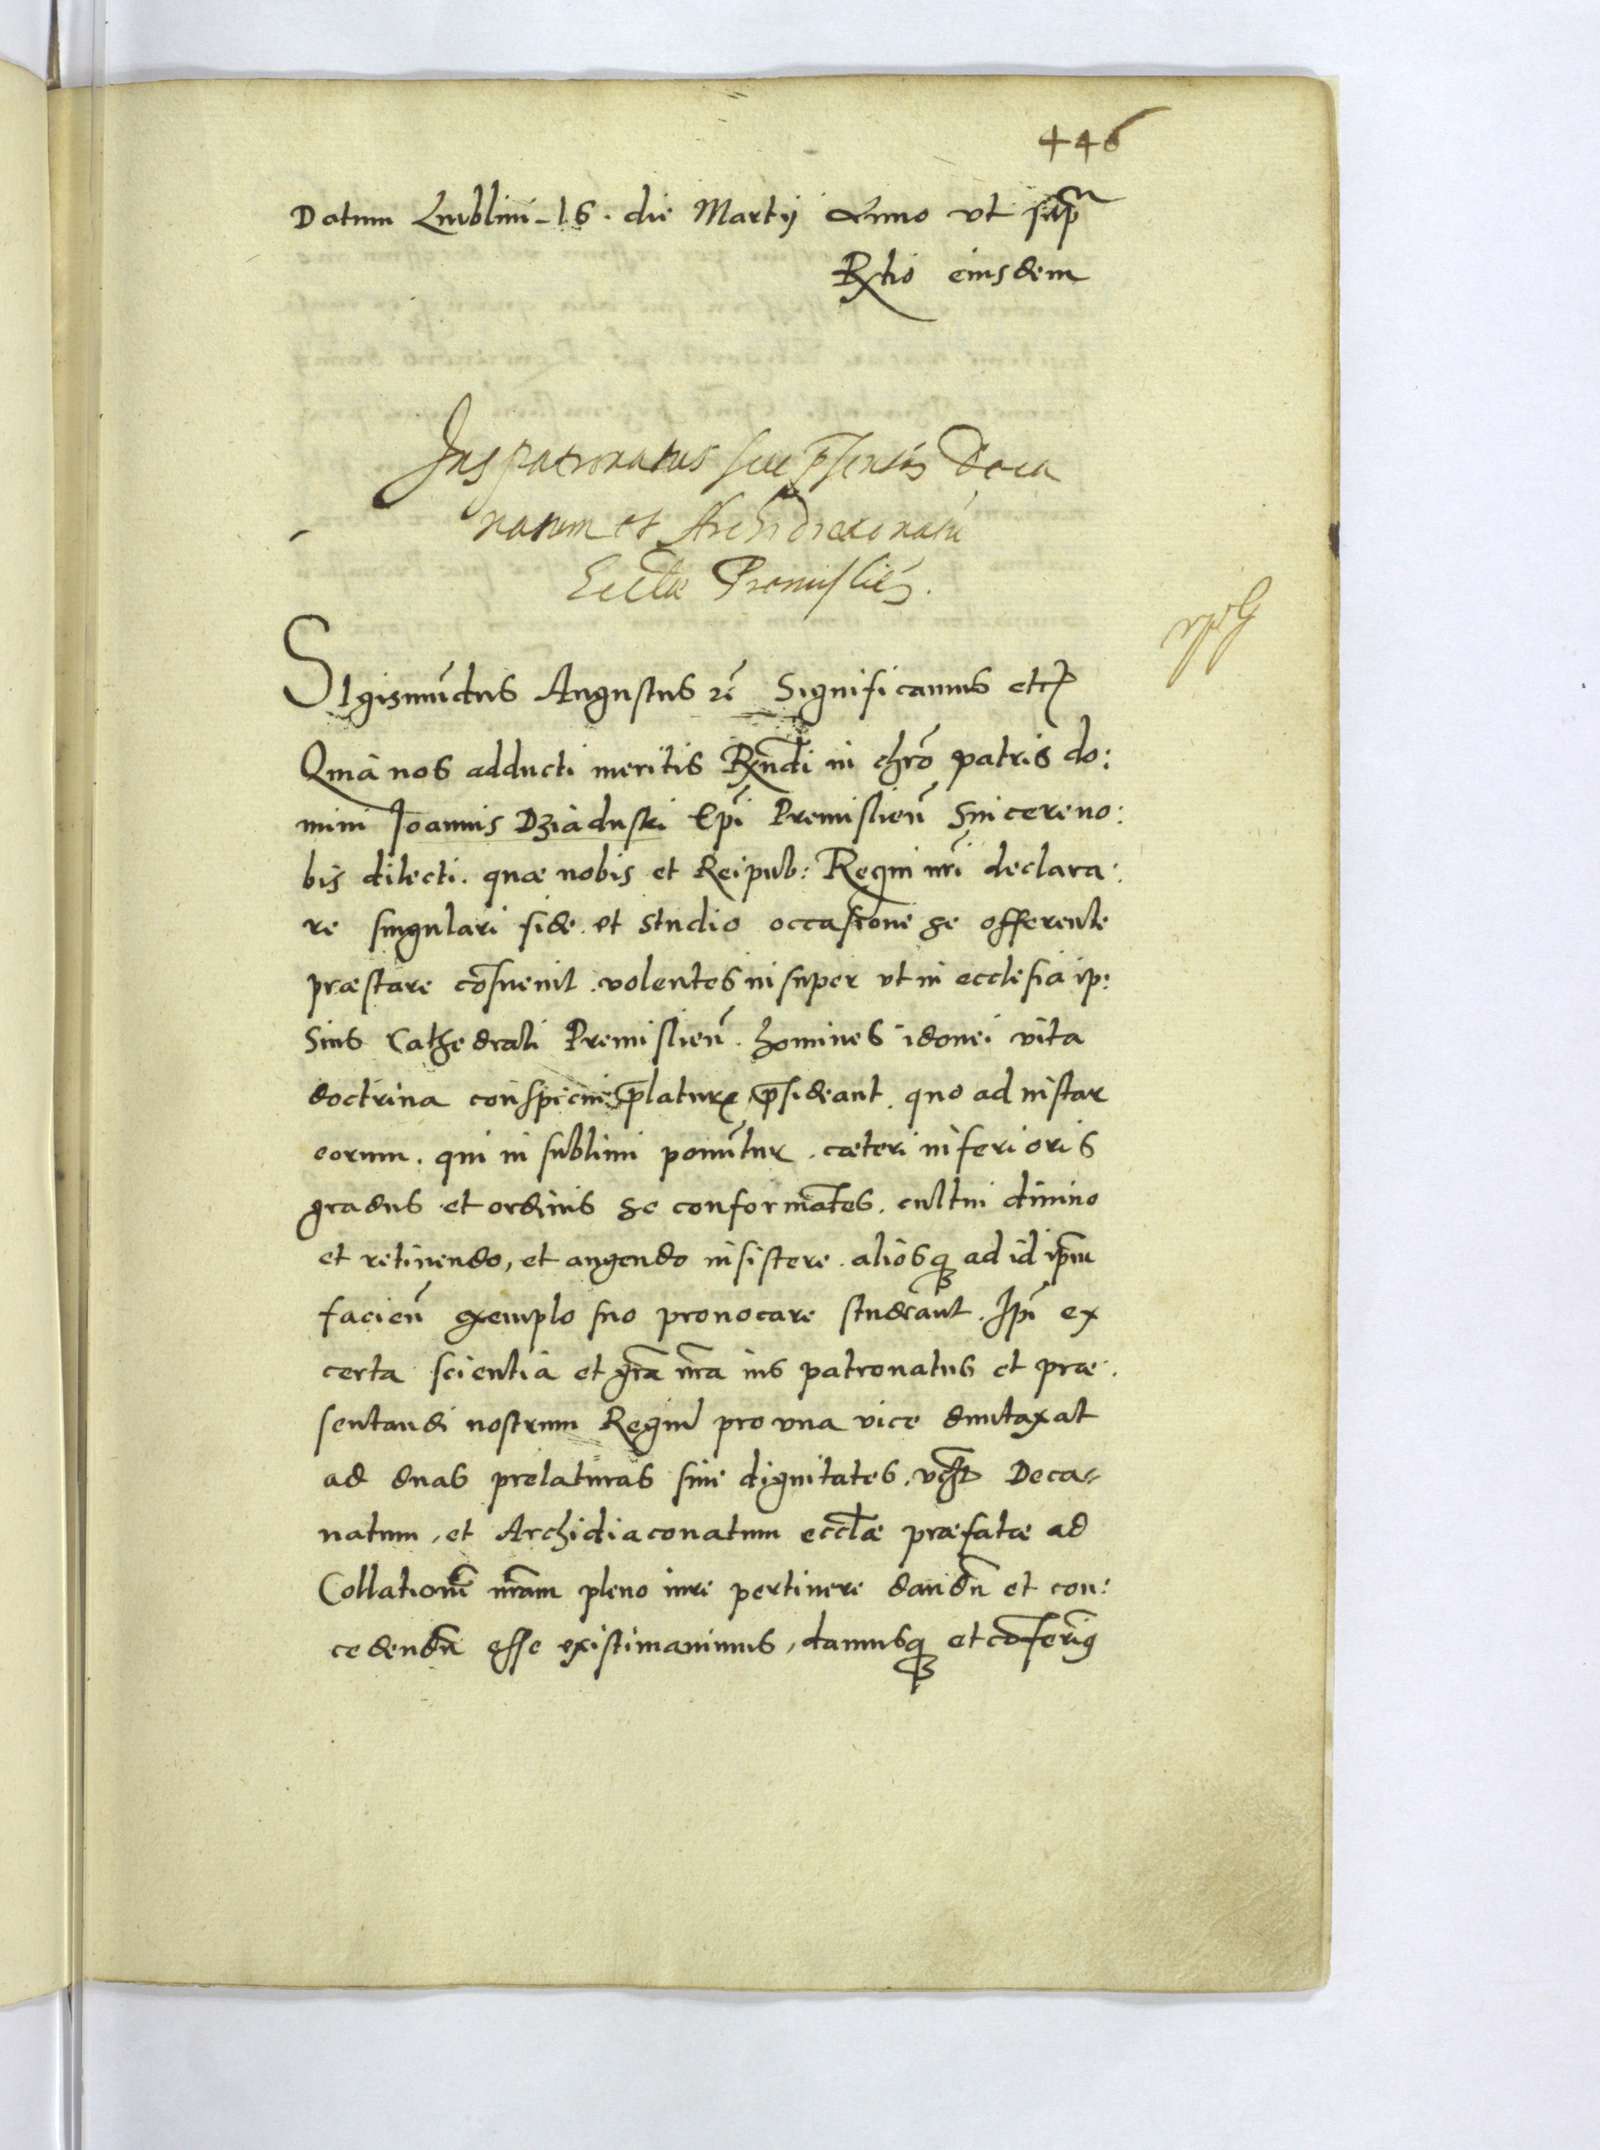 446
Datum Lublinī 16. die Martij Anno vt supᵃ
Rxtio eiusdem
Jus patronatus seu p̄sentan̄ Deca
natum et Archidiaconatū
Eccłæ Premislień.
SIgismūdus Augustus rē Significamus etc
Quia nos adducti meritis Rxndi in chrō patris do:
mini Joannis Dziaduski Epī Premislieñ Sincere no:
bis dilecti. quæ nobis et Reipub: Regni nr̄i declara:
re singulari fide et studio occasione se offerente
præstare cōsueuit. volentes insuper vt in ecclesia ip:
sius Cathedrali Premislieñ. homines idonei vita
doctrina conspicui p̄laturæ p̄sideant. quo ad instar
eorum. qui in sublimi ponūtur. cæteri inferioris
gradus et ordinis se conformātes. cultui diuino
et retinendo, et augendo insistere. aliosq ad id ip̄m
facieñ exemplo suo prouocare studeant. Ipī ex
certa scientia et gr̄a nr̄a ius patronatus et præ:
sentandi nostrum Regiū pro vna vice duntaxat
ad duas prelaturas siue dignitates, vcꝫ Deca-
natum, et Archidiaconatum eccłæ præfatæ ad
Collationē nr̄am pleno iure pertinere dandū et con:
cedendū esse existimauimus, damusq et conferīg